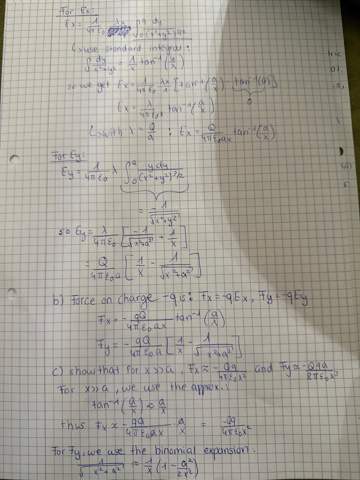 For Ex:
Ex = 1/4πε₀ λx ∫₀ᵃ dy/(x²+y²)³ᐟ²
↳ use standard integral:
∫ dy/√x²+y² = 1/x tan⁻¹(a/x)
so we get Ex = 1/4πε₀ λx/x [tan⁻¹(a/x) - tan⁻¹(0)]
0
Ex = λ/4πε₀x tan⁻¹(a/x)
↳ with λ = Q/a : Ex = Q/4πε₀ax tan⁻¹(a/x)
For Ey:
Ey = 1/4πε₀ λ ∫₀ᵃ ydy/(x²+y²)³ᐟ²
= -1/√x²+y²
so Ey = λ/4πε₀ [-1/√x²+a² + 1/x]
= Q/4πε₀a [1/x - 1/√x²+a²]
b) Force on charge -q is: Fx = -qEx, Fy = -qEy
Fx = -qQ/4πε₀ax tan⁻¹(a/x)
Fy = -qQ/4πε₀a [1/x - 1/√x²+a²]
c) show that for x>>a, Fx ≈ -Qq/4πε₀x² and Fy ≈ -Qqa/8πε₀x³
For x>>a, we use the approx.:
tan⁻¹(a/x) ≈ a/x
Thus Fx ≈ -qQ/4πε₀ax · a/x = -Qq/4πε₀x²
For Fy, we use the binomial expansion:
1/√x²+a² ≈ 1/x (1 - a²/2x²)